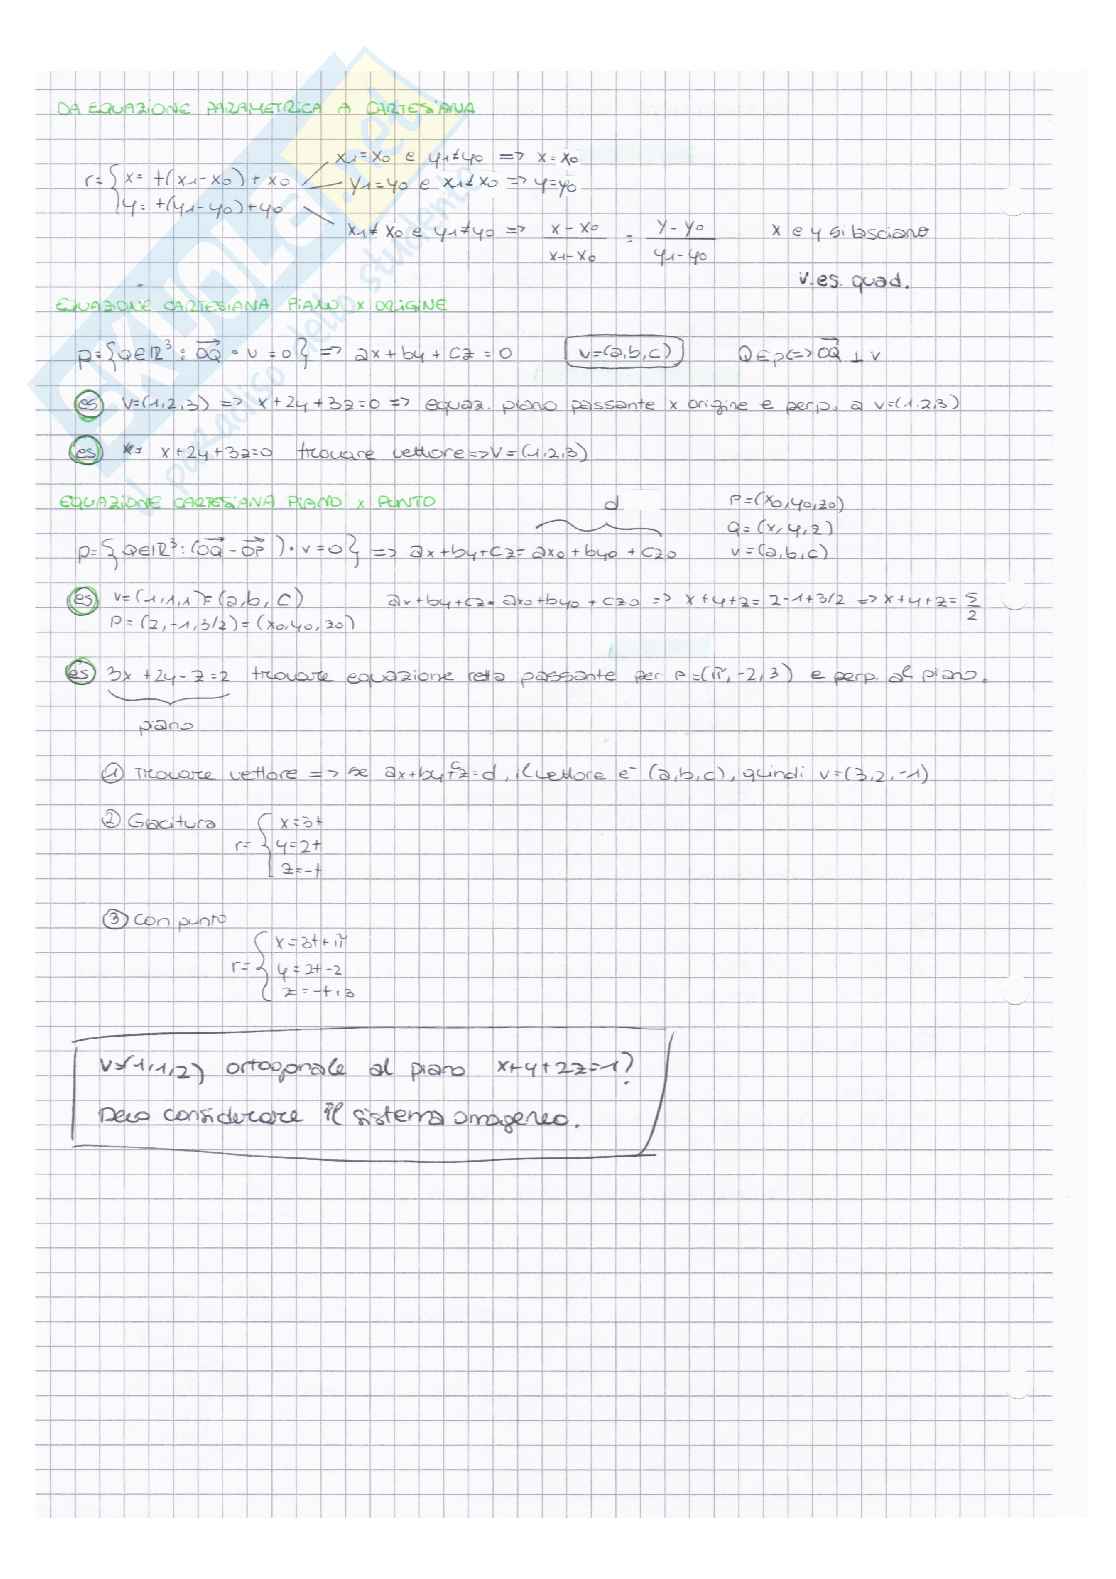 DA EQUAZIONE PARAMETRICA A CARTESIANA
x1=x0 e y1≠y0 => x=x0
r= { x= t(x1-x0)+x0
y1=y0 e x1≠x0 => y=y0
y= t(y1-y0)+y0
x1≠x0 e y1≠y0 => (x-x0)/(x1-x0) = (y-y0)/(y1-y0) x e y si lasciano
v.es. quad.
EQUAZIONE CARTESIANA PIANO x ORIGINE
p={Q∈R³: OQ • v=0} => ax+by+cz=0 v=(a,b,c) Q∈p<=>OQ ⊥ v
es v=(1,2,3) => x+2y+3z=0 => equaz. piano passante x origine e perp. a v=(1,2,3)
es x+2y+3z=0 trovare vettore=>v=(1,2,3)
EQUAZIONE CARTESIANA PIANO x PUNTO
d P=(x0,y0,z0)
Q=(x,y,z)
p={Q∈R³:(OQ-OP)•v=0} => ax+by+cz=ax0+by0+cz0 v=(a,b,c)
es v=(1,1,1)=(a,b,c) ax+by+cz=ax0+by0+cz0 => x+y+z=2-1+3/2 => x+y+z=5/2
P=(2,-1,3/2)=(x0,y0,z0)
es 3x+2y-z=2 trovare equazione retta passante per P=(π,-2,3) e perp. al piano.
piano
① Trovare vettore => se ax+by+cz=d, il vettore è (a,b,c), quindi v=(3,2,-1)
② Giacitura { x=3t
r= y=2t
z=-t
③ Con punto
{ x=3t+π
r= y=2t-2
z=-t+3
v=(1,1,2) ortogonale al piano x+y+2z=1?
Devo considerare il sistema omogeneo.
il paradiso dello studente
SKUOLA.net